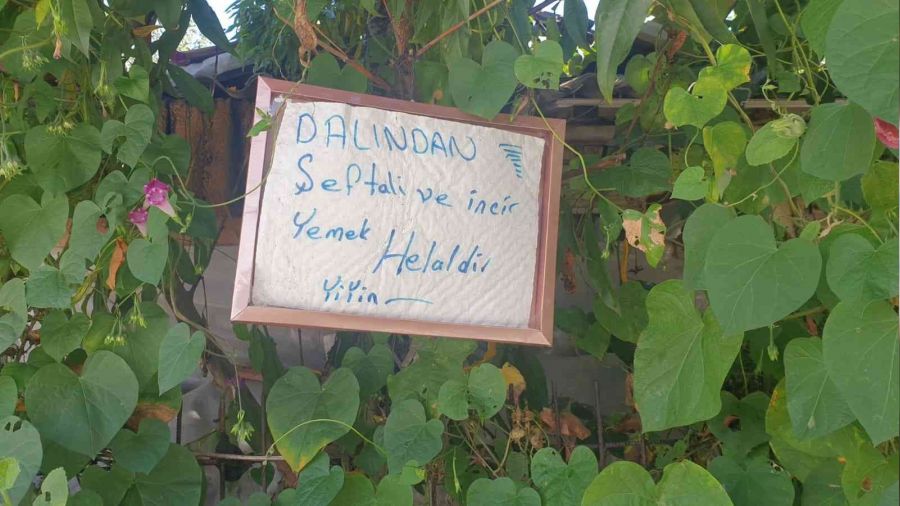 DALINDAN
Şeftali ve incir
Yemek Helaldir
YiYin